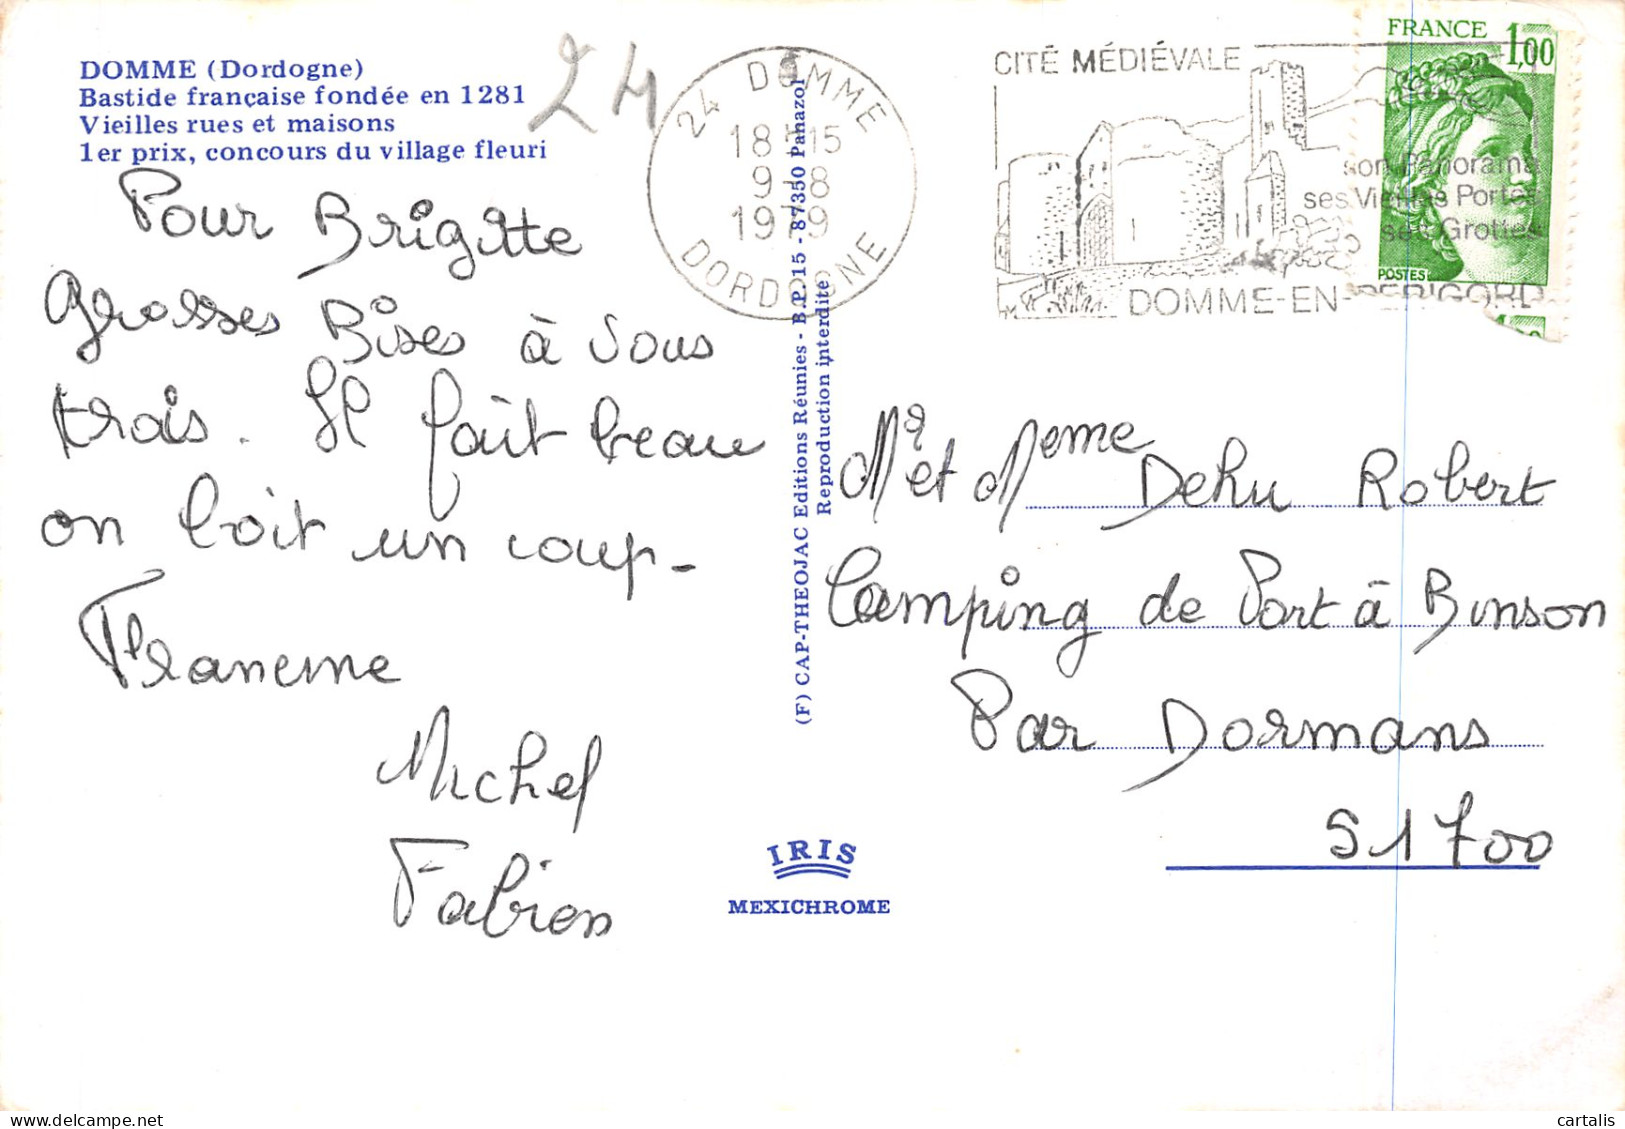 DOMME (Dordogne)
Bastide française fondée en 1281
Vieilles rues et maisons
1er prix, concours du village fleuri
24
24 DOMME
18 H 15
9-8
1979
DORDOGNE
CITÉ MÉDIÉVALE
son Panorama
ses Vieilles Portes
ses Grottes
DOMME-EN-PERIGORD
FRANCE 1,00
POSTES
Pour Brigitte
Grosses Bises à vous
trois. Il fait beau
on boit un coup-
Michel
Fabien
(F) CAP-THEOJAC Editions Réunies - B.P. 15 - 87350 Panazol
Reproduction interdite
Mr et Meme Dehu Robert
Camping de Port à Binson
Par Dormans
51700
IRIS
MEXICHROME
cartalis